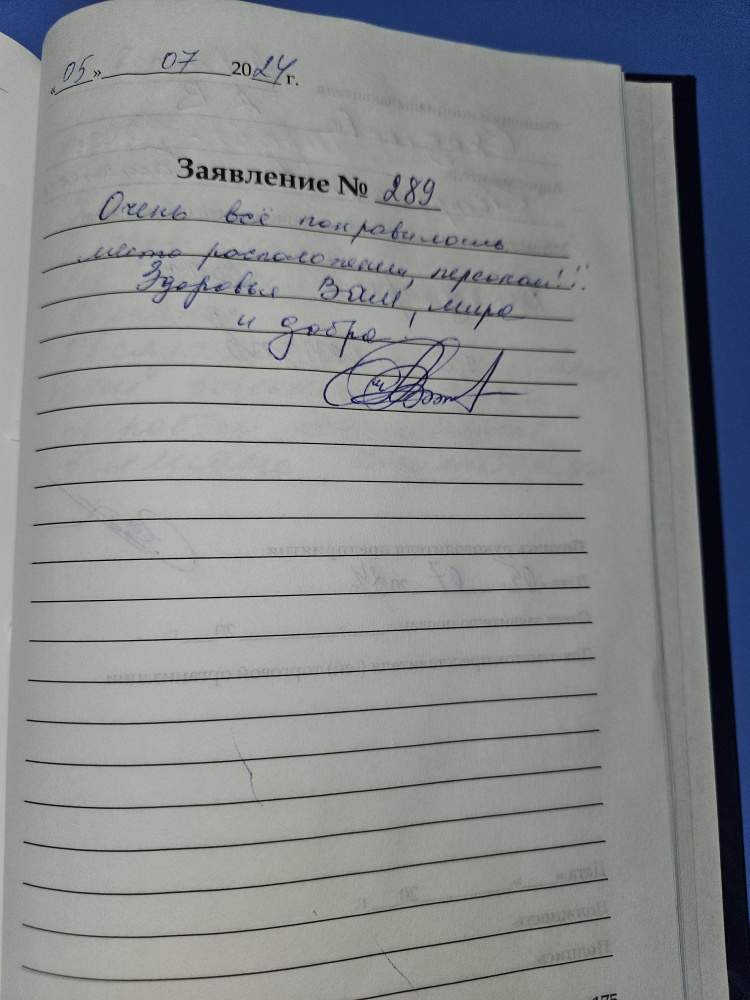 «05» 07 2024 г.
Заявление № 289
Очень всё понравилось
место расположения, персонал!!!
Здоровья Вам, мира
и добра!
175